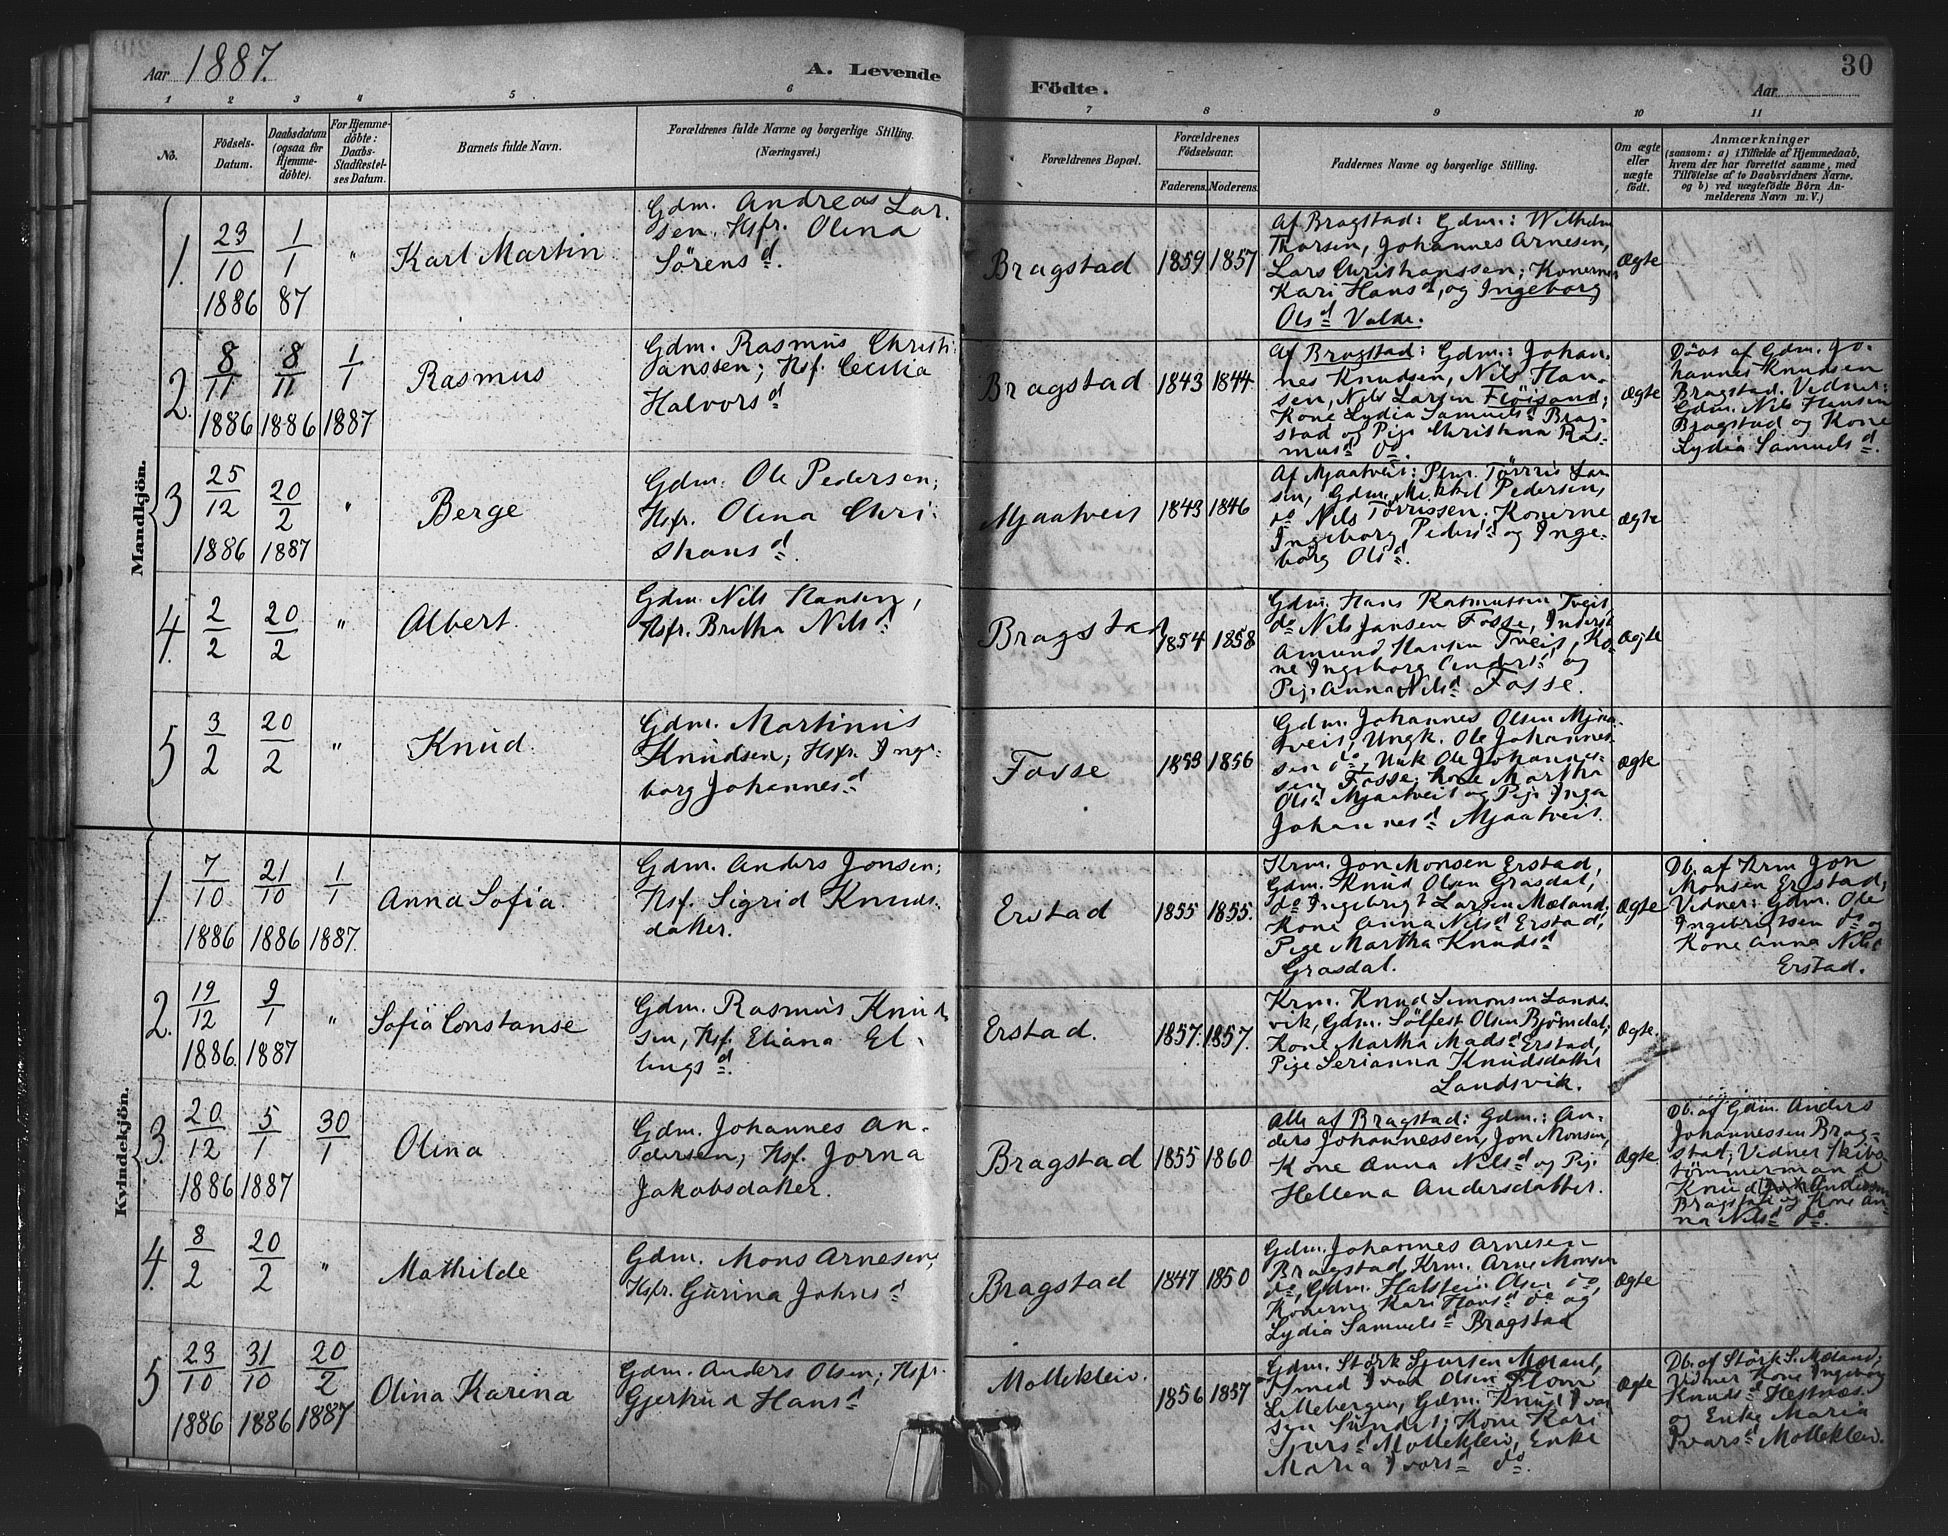 Aar 1887.
A. Levende
Födte.
Aar
30
1 2 3 4 5 6 7 8 9 10 11
No.
Födsels-
Datum.
Daabsdatum
(ogsaa for
Hjemme-
döbte).
For Hjemme-
döbte:
Daabs-
Stadfæstel-
ses Datum.
Barnets fulde Navn.
Forældrenes fulde Navne og borgerlige Stilling.
(Næringsvei.)
Forældrenes Bopæl.
Forældrenes
Födselsaar.
Faderens. Moderens.
Faddernes Navne og borgerlige Stilling.
Om ægte
eller
uægte
födt.
Anmærkninger
(saasom: a) i Tilfælde af Hjemmedaab,
hvem der har forrettet samme, med
Tilföielse af to Daabsvidners Navne,
og b) ved uægtefödte Börn An-
melderens Navn m. V.)
Mandkjön.
1.
23/10 1886
1/1 87
"
Karl Martin
Gdm. Andreas Lar-
sen, Hsfr. Olina
Sørensd.
Bragstad
1859
1857
Af Bragstad: Gdm: Wilhelm
Thorsen, Johannes Arnesen,
Lars Christianssen; Konerne
Kari Hansd, og Ingeborg
Olsd Valde.
Ægte
2.
8/11 1886
8/11 1886
1/1 1887
Rasmus
Gdm. Rasmus Christi-
anssen; Hsf. Cecilia
Halvorsd
Bragstad
1843
1844
Af Bragstad: Gdm: Johan-
nes Knudsen, Nils Han-
sen, Nils Larsen Fløisand;
Kone Lydia Samuelsd Brag-
stad og Pige Christina Ras-
musd do.
ægte
Døbt af Gdm. Jo-
hannes Knudsen
Bragstad. Vidner:
Gdm. Nils Hansen
Bragstad og Kone
Lydia Samuelsd.
3
25/12 1886
20/2 1887
"
Berge
Gdm. Ole Pedersen;
Hsfr. Olina Chri-
stiansd.
Mjaatveit
1843
1846
Af Mjaatveit: Plm. Tørris Lar-
sen, Gdm. Mikkel Pedersen,
do Nils Tørrissen. Konerne
Ingeborg Pedersd og Inge-
borg Olsd.
ægte
4.
2/2
20/2
"
Albert.
Gdm. Nils Hansen,
Hsfr. Britha Nilsd
Bragstad
1854
1858
Gdm. Hans Rasmussen Tveit,
do Nils Jansen Fosse, Inderst
Amund Hansen Tveit, Ko-
ne Ingeborg Andersd og
Pige Anna Nilsd Fosse.
Ægte
5
3/2
20/2
"
Knud.
Gdm. Martinus
Knudsen; Hsfr. Inge-
borg Johannesd
Fosse
1853
1856
Gdm. Johannes Olsen Mjaa-
tveit, Ungk. Ole Johannes-
sen do, Unk Ole Johannes-
sen Fosse; Kone Martha
Olsd Mjaatveit og Pige Inga
Johannesd Mjaatveit.
ægte
Kvindekjön.
1
7/10 1886
21/10 1886
1/1 1887.
Anna Sofia.
Gdm. Anders Jonsen;
Hsf. Sigrid Knuds-
datter.
Erstad
1855
1855.
Krm. Jon Monsen Erstad,
Gdm. Knud Olsen Grasdal,
do Ingebrigt Larsen Mæland;
Kone Anna Nilsd Erstad,
Pige Martha Knudsd
Grasdal.
Ægte
Db. af Krm Jon
Monsen Erstad;
Vidner: Gdm. Ole
Ingebrigtsen do og
Kone Anna Nilsd
Erstad.
2.
19/12 1886.
9/1 1887
"
Sofia Constanse
Gdm. Rasmus Knud-
sen, Hsf. Eliana El-
lingsd.
Erstad.
1857.
1857.
Krm. Knud Simonsen Lands-
vik, Gdm. Sølfest Olsen Bjørndal;
Kone Martha Madsd Erstad,
Pige Serianna Knudsdatter
Landsvik.
Ægte.
3.
20/12 1886
5/1 1887
30/1
Olina
Gdm. Johannes An-
dersen; Hsf. Jorna
Jakobsdatter.
Bragstad
1855
1860
Alle af Bragstad: Gdm: An-
ders Johannessen, Jon Monsen,
Kone Anna Nilsd og Pige
Hellena Andersdatter.
ægte.
Db. af Gdm. Anders
Johannessen Brag-
stad; Vidner Skibs-
tømmermand
Knud Andersen
Bragstad og Kone An-
na Nilsd do.
4.
8/2
20/2
"
Mathilde
Gdm. Mons Arnesen,
Hsfr. Gurina Johnsd
Bragstad
1847
1850
Gdm. Johannes Arnesen
Bragstad, Krm. Arne Monsen
do, Gdm. Halstein Olsen do,
Konerne Kari Hansd do og
Lydia Samuelsd Bragstad
ægte
5
23/10 1886
31/10 1886
20/2 1887
Olina Karina
Gdm. Anders Olsen; Hsfr.
Gjertrud Hansd
Mollekleiv.
1856
1857
Gdm. Størk Sjursen Mæland,
Smed Ivar Olsen Flom
Lillebergen, Gdm. Knud Ivar-
sen Sundet; Kone Kari
Sjursd Mollekleiv, Enke
Maria Ivarsd do.
Ægte
Db. af Størk S. Mæland;
Vidner Kone Ingeborg
Knudsd Hestnæs
og Enke Maria
Ivarsd Mollekleiv.